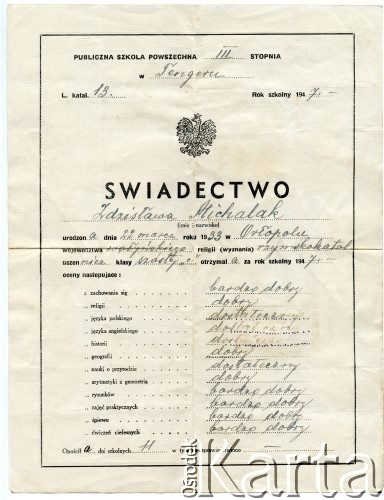 PUBLICZNA SZKOŁA POWSZECHNA III STOPNIA
w Tengeru
L. katal. 13. Rok szkolny 1947.-
ŚWIADECTWO
Zdzisława Michalak
(imię i nazwisko)
urodzon a dnia 22 marca roku 1933 w Orłopolu
województwa wołyńskiego religii (wyznania) rzymskokatol.
uczennica klasy szóstej otrzymał a za rok szkolny 1947.-
oceny następujące:
z zachowania się bardzo dobry
religii dobry
języka polskiego dostateczny
języka angielskiego dostateczny
historii
geografii dobry
nauki o przyrodzie dostateczny
arytmetyki z geometrią dobry
rysunków bardzo dobry
zajęć praktycznych bardzo dobry
śpiewu bardzo dobry
ćwiczeń cielesnych bardzo dobry
Opuścił a dni szkolnych 11 w tym
ośrodek Karta